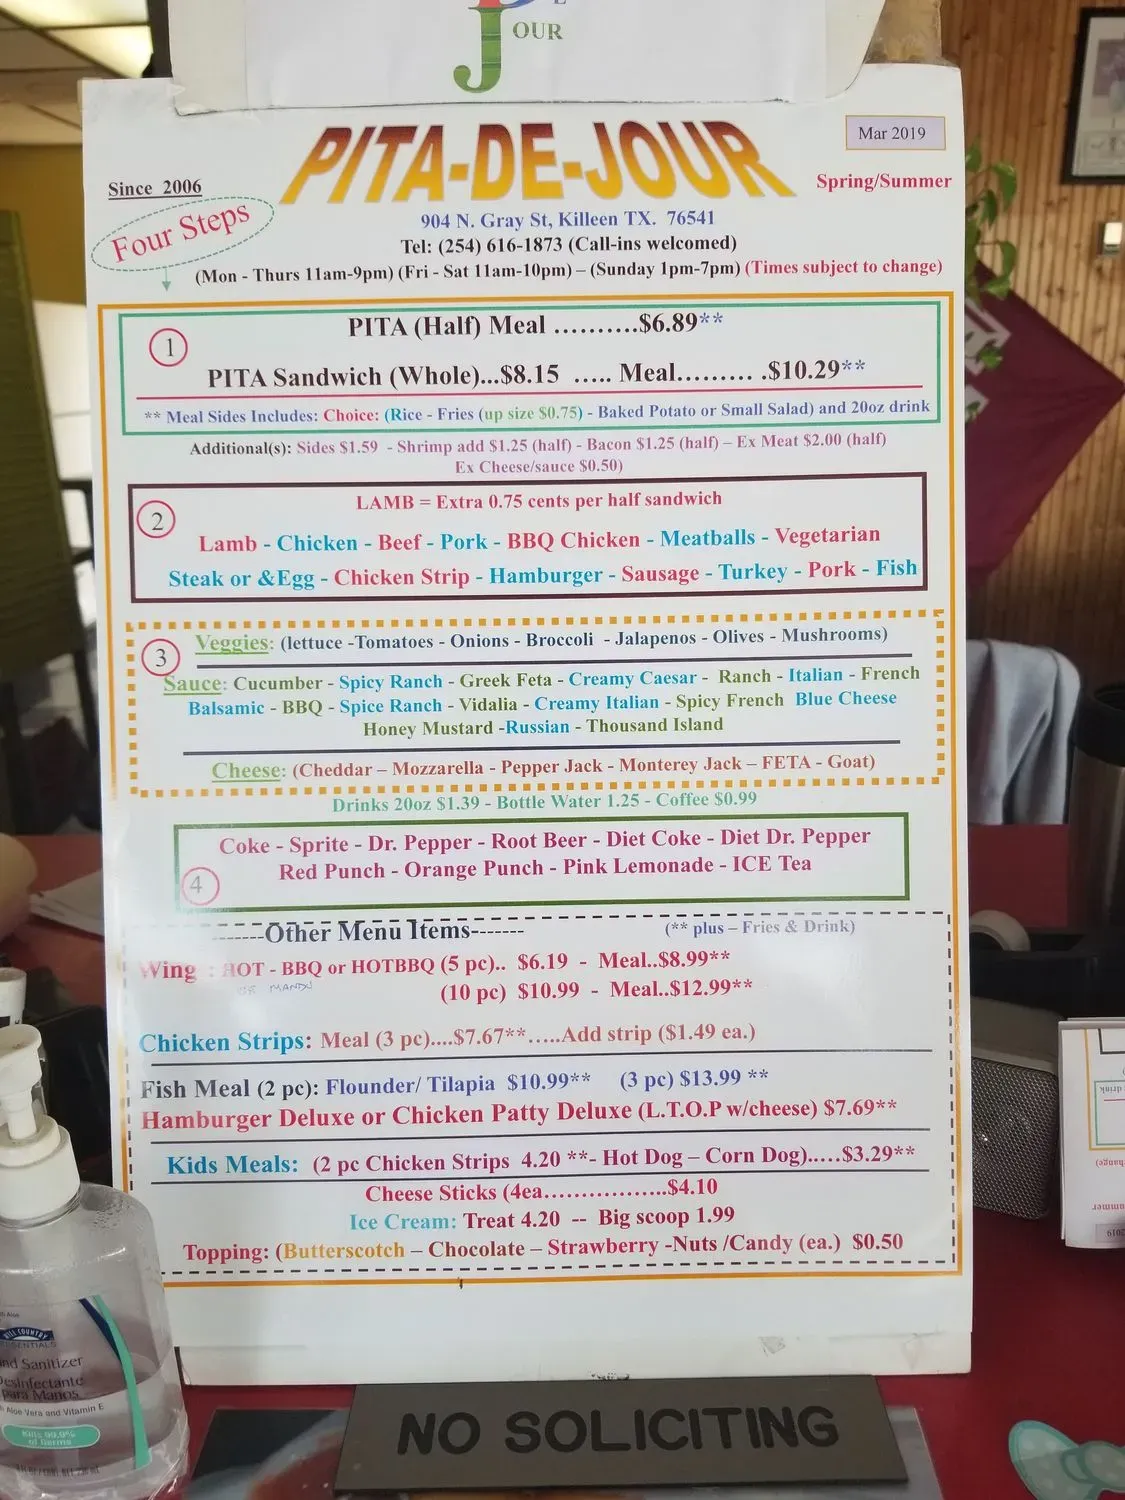 J OUR
PITA-DE-JOUR
Mar 2019
Since 2006
Spring/Summer
Four Steps
904 N. Gray St, Killeen TX. 76541
Tel: (254) 616-1873 (Call-ins welcomed)
(Mon - Thurs 11am-9pm) (Fri - Sat 11am-10pm) – (Sunday 1pm-7pm) (Times subject to change)
1
PITA (Half) Meal ……….$6.89**
PITA Sandwich (Whole)...$8.15 ….. Meal……… .$10.29**
** Meal Sides Includes: Choice: (Rice - Fries (up size $0.75) - Baked Potato or Small Salad) and 20oz drink
Additional(s): Sides $1.59 - Shrimp add $1.25 (half) - Bacon $1.25 (half) – Ex Meat $2.00 (half)
Ex Cheese/sauce $0.50)
2
LAMB = Extra 0.75 cents per half sandwich
Lamb - Chicken - Beef - Pork - BBQ Chicken - Meatballs - Vegetarian
Steak or &Egg - Chicken Strip - Hamburger - Sausage - Turkey - Pork - Fish
3
Veggies: (lettuce -Tomatoes - Onions - Broccoli - Jalapenos - Olives - Mushrooms)
Sauce: Cucumber - Spicy Ranch - Greek Feta - Creamy Caesar - Ranch - Italian - French
Balsamic - BBQ - Spice Ranch - Vidalia - Creamy Italian - Spicy French Blue Cheese
Honey Mustard -Russian - Thousand Island
Cheese: (Cheddar – Mozzarella - Pepper Jack - Monterey Jack – FETA - Goat)
Drinks 20oz $1.39 - Bottle Water 1.25 - Coffee $0.99
Coke - Sprite - Dr. Pepper - Root Beer - Diet Coke - Diet Dr. Pepper
Red Punch - Orange Punch - Pink Lemonade - ICE Tea
4
-------Other Menu Items------- (** plus – Fries & Drink)
Wing : HOT - BBQ or HOTBBQ (5 pc).. $6.19 - Meal..$8.99**
(10 pc) $10.99 - Meal..$12.99**
Chicken Strips: Meal (3 pc)....$7.67**…..Add strip ($1.49 ea.)
Fish Meal (2 pc): Flounder/ Tilapia $10.99** (3 pc) $13.99 **
Hamburger Deluxe or Chicken Patty Deluxe (L.T.O.P w/cheese) $7.69**
Kids Meals: (2 pc Chicken Strips 4.20 **- Hot Dog – Corn Dog)…..$3.29**
Cheese Sticks (4ea………………..$4.10
Ice Cream: Treat 4.20 -- Big scoop 1.99
Topping: (Butterscotch – Chocolate – Strawberry -Nuts /Candy (ea.) $0.50
HILL COUNTRY
ESSENTIALS
nd Sanitizer
Desinfectante
para Manos
Aloe Vera and Vitamin E
Kills 99.9%
of Germs
NO SOLICITING